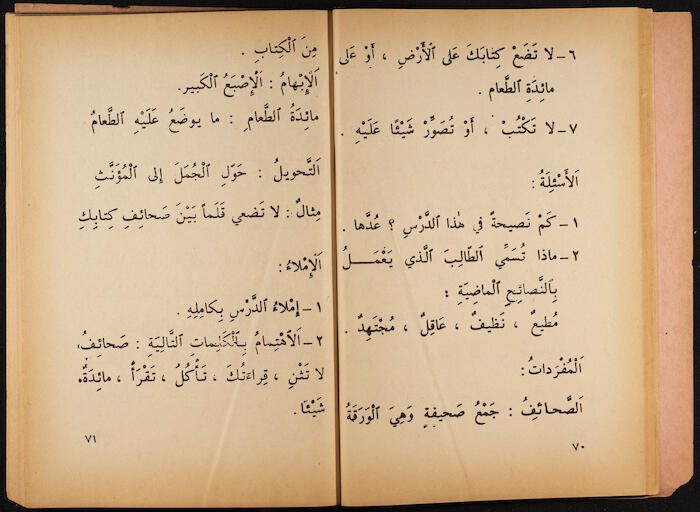 ٦ - لا تَضَعْ كِتابَكَ عَلى ٱلْأَرْضِ ، أَوْ عَلى
مائِدَةِ ٱلطَّعام .
٧ - لا تَكْتُبْ ، أَوْ تُصَوِّرْ شَيْئًا عَلَيْهِ .
ٱلأَسْئِلَةُ :
١ - كَمْ نَصيحةً في هٰذا ٱلدَّرْسِ ؟ عُدَّها .
٢ - ماذا تُسَمِّي ٱلطّالِبَ ٱلَّذي يَعْمَلُ
بِٱلنَّصائِحِ ٱلْماضِيَةِ :
مُطيعٌ ، نَظيفٌ ، عَاقِلٌ ، مُجْتَهِدٌ .
ٱلْمُفْرَداتُ :
ٱلصَّحائِفُ : جَمْعُ صَحيفةٍ وَهِيَ ٱلْوَرَقَةُ
٧٠
مِنَ ٱلْكِتابِ .
ٱلْإِبْهامُ : ٱلْإِصْبَعُ ٱلْكَبير .
مائِدَةُ ٱلطَّعامِ : ما يوضَعُ عَلَيْهِ ٱلطَّعامُ
ٱلتَّحويلُ : حَوِّلِ ٱلْجُمَلَ إِلى ٱلْمُؤَنَّثِ
مِثالٌ : لا تَضَعي قَلَماً بَيْنَ صَحائِفِ كِتابِكِ
ٱلْإِمْلاءُ :
١ - إِمْلاءُ ٱلدَّرْسِ بِكامِلِهِ .
٢ - ٱلاهْتِمامُ بِٱلْكَلِماتِ ٱلتَّالِيَةِ : صَحائِفُ،
لا تَثْنِ ، قِراءَتُكَ ، تَأْكُلُ ، تَقْرَأُ ، مائِدَةٌ،
شَيْئًا .
٧١